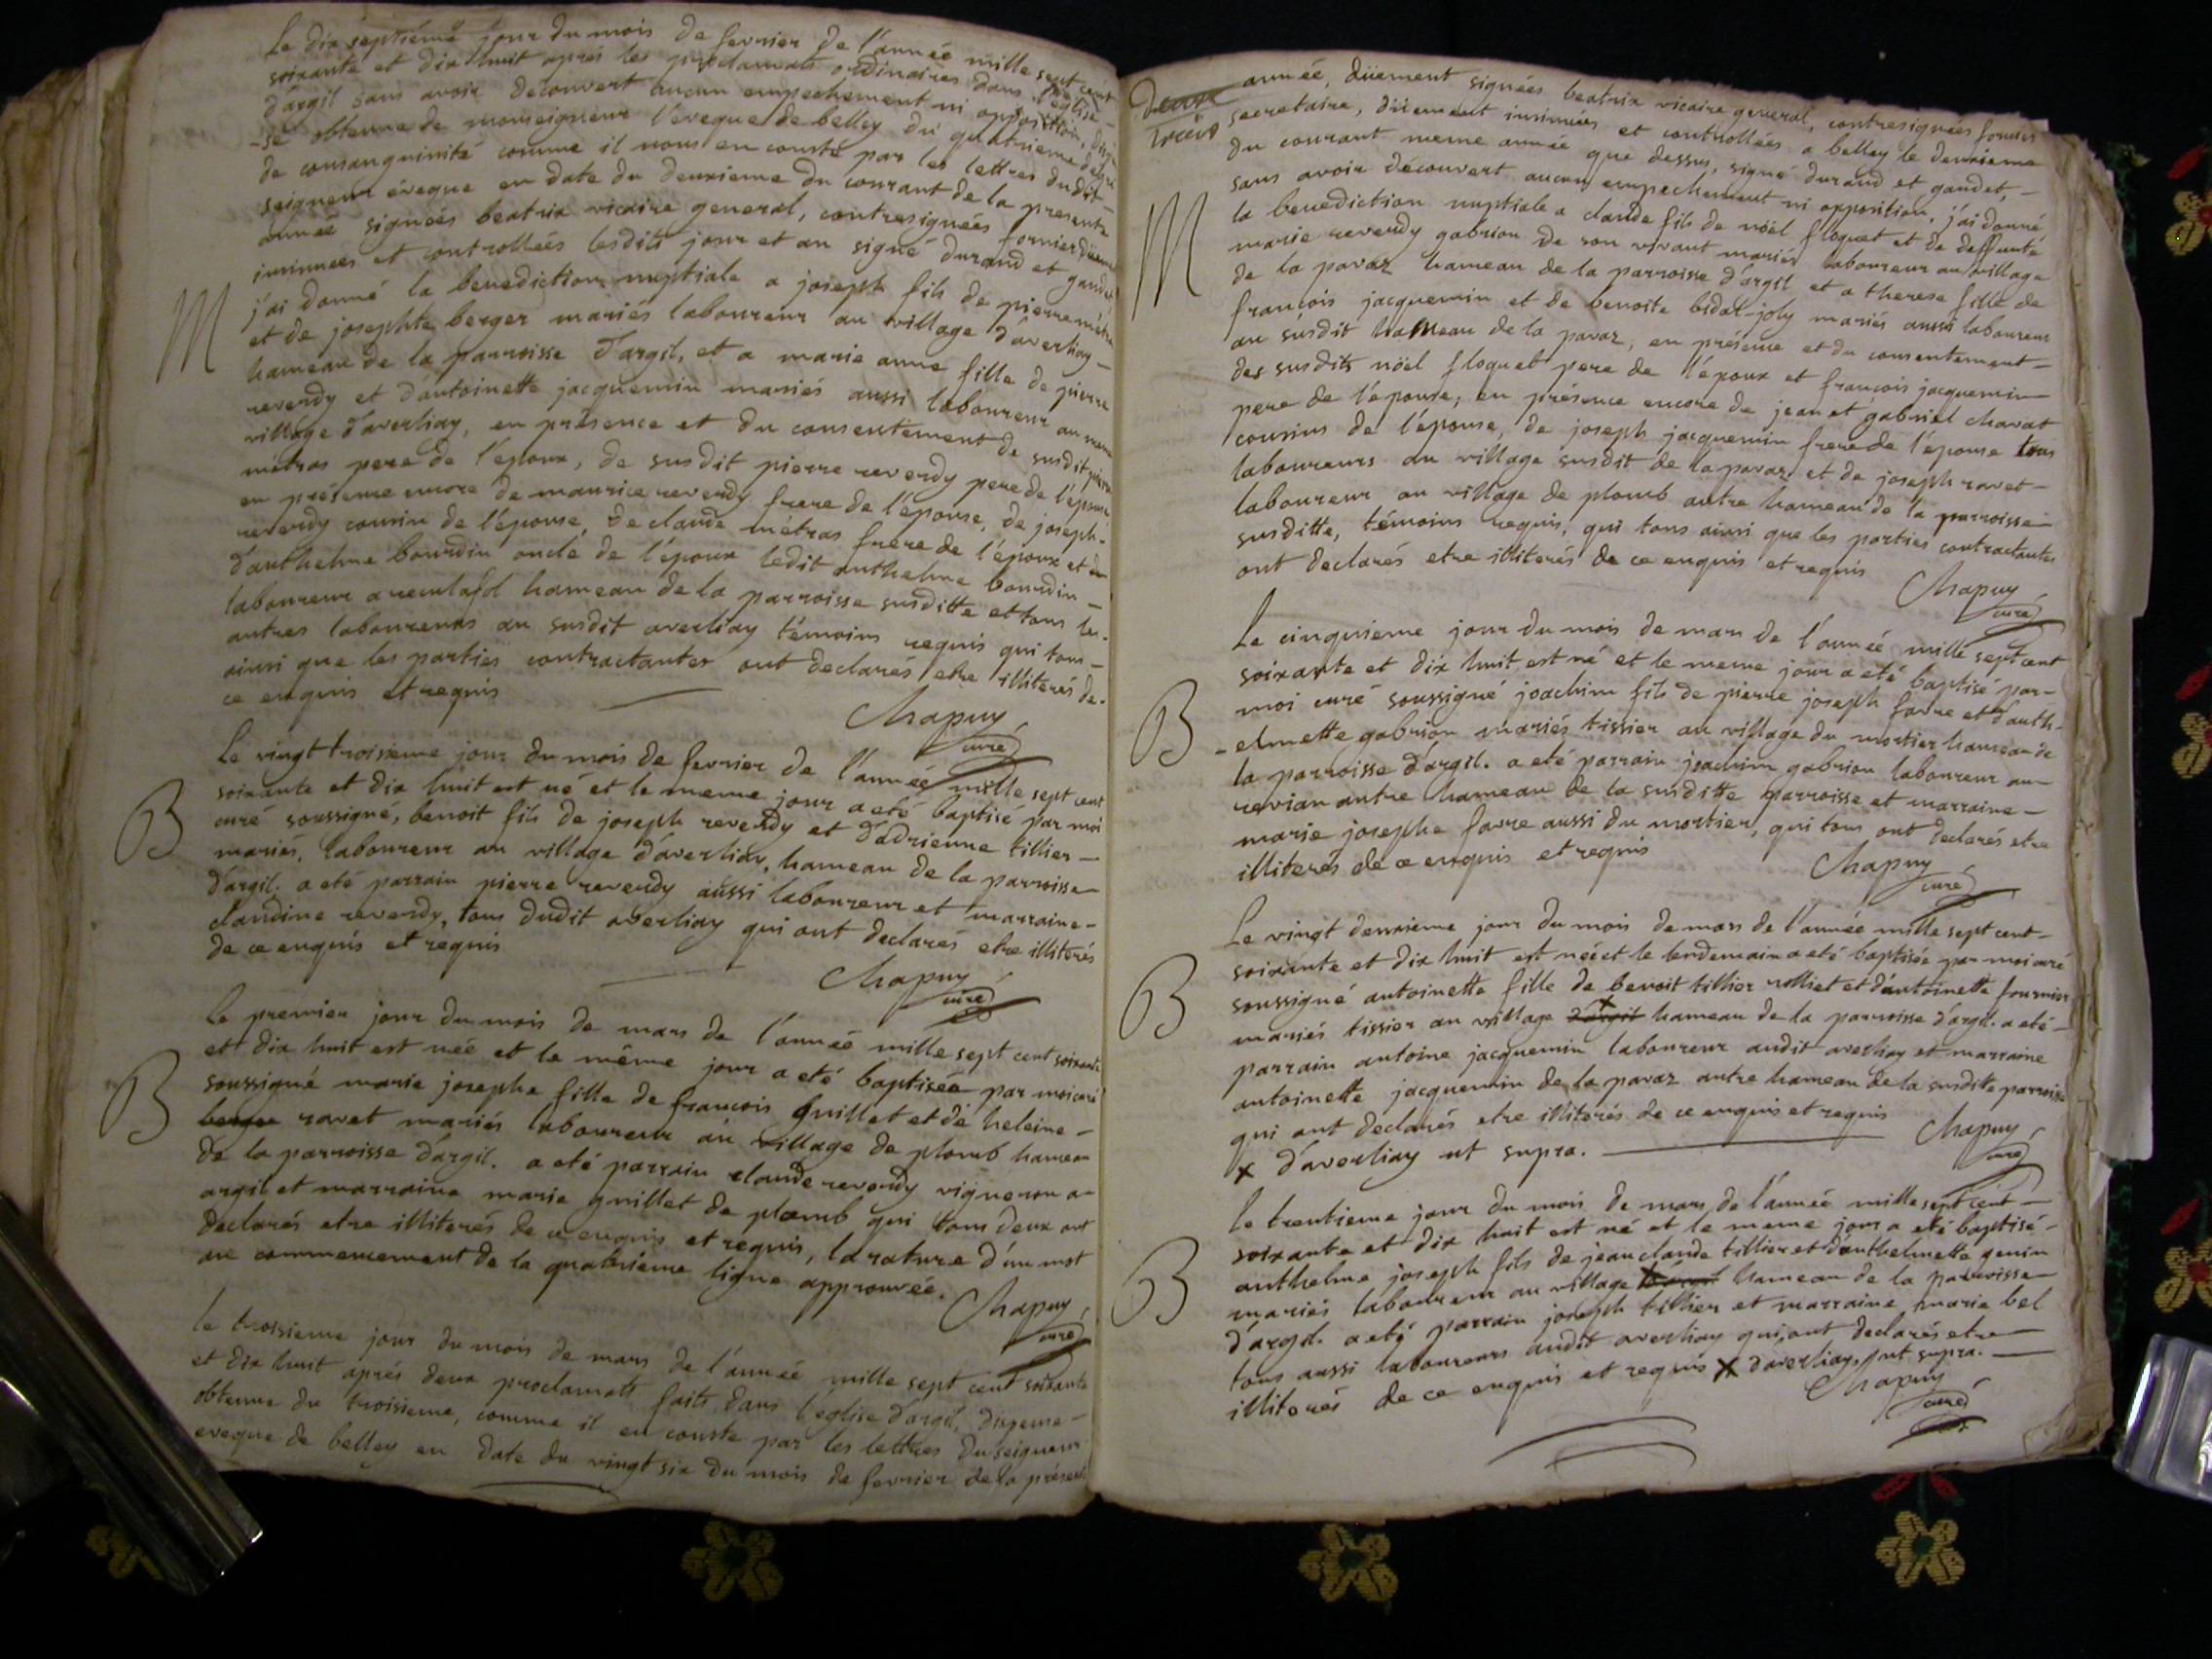 Le dix septiéme jour du mois de fevrier de l'année mille sept cent
soixante et dix huit aprés les proclamats ordinaires dans l'eglise
d'argil sans avoir découvert aucun empechement ni opposition,
-se obtenue de monseigneur l'éveque de belley du quatrieme degré
de consanguinité comme il nous en conste par les lettres dudit-
seigneur éveque en date du deuxieme du courant de la presente
année signées beatrix vicaire general, contresignées fornier
insinuees et controllées lesdits jour et an signé durand et gaudet
M
j'ai donné la benediction nuptiale a joseph fils de pierre métras
et de josephte berger mariés laboureur au village d'averliay-
hameau de la parroisse d'argil, et a marie anne fille de pierre
reverdy et d'antoinette jacquemin mariés aussi laboureur au
village d'averliay, en présence et du consentement de susdit pierre
métras pere de l'epoux, de susdit pierre reverdy pere de l'épouse
en présence encore de maurice reverdy frere de l'épouse, de joseph-
reverdy cousin de l'épouse, de claude métras frere de l'époux et de
d'anthelme bourdin oncle de l'époux ledit anthelme bourdin-
laboureur a hameau de la parroisse susditte et tous les-
autres laboureurs au susdit averliay témoins requis qui tous-
ainsi que les parties contractantes ont declarés etre illiterés de-
ce enquis et requis
Chapuy
curé
Le vingt troisieme jour du mois de fevrier de l'année mille sept cent
soixante et dix huit est né et le meme jour a eté baptisé par moi
B
curé soussigné, benoit fils de joseph reverdy et d'adrienne tillier-
mariés, laboureur au village d'averliay, hameau de la parroisse
d'argil. a eté parrain pierre reverdy aussi laboureur et marraine-
claudine reverdy, tous dudit averliay qui ont declarés etre illiterés
de ce enquis et requis
Chapuy
curé
Le premier jour du mois de mars de l'année mille sept cent soixante
et dix huit est née et le même jour a eté baptisée par moi curé
B
soussigné marie josephe fille de francois guillet et de heleine-
berger ravet mariés laboureur au village de plomb hameau
de la parroisse d'argil. a eté parrain claude reverdy vigneron a
argil et marraine marie guillet de plomb qui tous deux ont
declarés etre illiterés de ce enquis et requis, la rature d'un mot
au commencement de la quatrieme ligne approuvée.
Chapuy
curé
Le troisieme jour du mois de mars de l'année mille sept cent soixante
et dix huit aprés deux proclamats faits dans l'eglise d'argil, dispense-
obtenue du troisieme, comme il en conste par les lettres du seigneur
eveque de belley en date du vingt six du mois de fevrier de la présente
année, düement signées beatrix vicaire general, contresignées fornier
secretaire, düement insinuées et controllées a belley le deuxieme
du courant meme année que dessus, signé durand et gaudet,-
sans avoir découvert aucun empechement ni opposition, j'ai donné
M
la benediction nuptiale a claude fils de nöel floquet et de deffunte
marie reverdy gabrion de son vivant mariés laboureur au village
de la pavaz hameau de la parroisse d'argil et a therese fille de
françois jacquemin et de benoite bidal-joly mariés aussi laboureur
au susdit hameau de la pavaz, en présence et du consentement-
des susdits nöel floquet pere de l'époux et françois jacquemin-
pere de l'épouse, en présence encore de jean et gabriel chavat
cousins de l'épouse, de joseph jacquemin frere de l'épouse tous
laboureurs au village susdit de la pavaz et de joseph ravet-
laboureur au village de plomb autre hameau de la parroisse-
susditte, témoins requis, qui tous ainsi que les parties contractantes
ont declarés etre illiterés de ce enquis et requis
Chapuy
curé
Le cinquieme jour du mois de mars de l'année mille sept cent
soixante et dix huit, est né et le meme jour a eté baptisé par-
moi curé soussigné joachim fils de pierre joseph favre et d'anth-
B
-elmette gabrion mariés tissier au village du mortier hameau de
la parroisse d'argil. a eté parrain joachim gabrion laboureur au-
revian autre hameau de la susditte parroisse et marraine-
marie josephe favre aussi du mortier, qui tous ont declarés etre
illiterés de ce enquis et requis
Chapuy
curé
Le vingt deuxieme jour du mois de mars de l'année mille sept cent-
soixante et dix huit est née et le lendemain a eté baptisée par moi curé
B
soussigné antoinette fille de benoit tillier rolliet et d'antoinette fournier
mariés tissier au village d'argil x hameau de la parroisse d'argil. a eté-
parrain antoine jacquemin laboureur audit averliay et marraine
antoinette jacquemin de la pavaz autre hameau de la susditte parroisse
qui ont declarés etre illiterés de ce enquis et requis
x d'averliay ut supra.
Chapuy
curé
Le trentieme jour du mois de mars de l'année mille sept cent-
soixante et dix huit est né et le meme jour a eté baptisé-
B
anthelme joseph fils de jean claude tillier et d'anthelmette genin
mariés laboureur au village x hameau de la parroisse-
d'argil. a eté parrain joseph tillier et marraine marie bel
tous aussi laboureurs audit averliay qui ont declarés etre
illiterés de ce enquis et requis x d'averliay ut supra.
Chapuy
curé